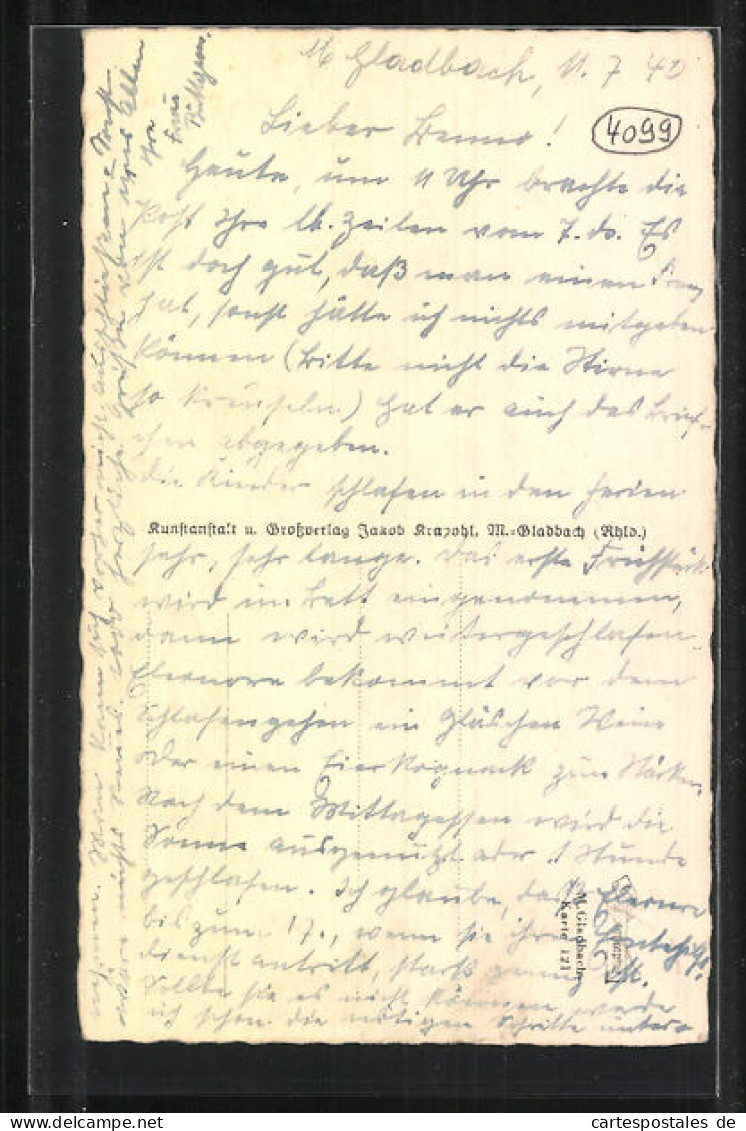 M Gladbach, 11. 7 40
4099
Lieber Benno!
Heute, um 11 Uhr brachte die
Post Ihre lb. Zeilen vom 7. ds. Es
ist doch gut, daß man einen
hat, sonst hätte ich nichts mitgeben
können (Bitte nicht die Stirne
so kräuseln) hat er auch das Brief-
chen abgegeben.
Die Kinder schlafen in den Ferien
Kunstanstalt u. Großverlag Jakob Krapohl, M.=Gladbach (Rhld.)
sehr, sehr lange. Das erste Frühstück
wird im Bett eingenommen,
dann wird weitergeschlafen.
Eleonore bekommt vor dem
Schlafengehen ein Gläschen Wein
oder einen Eierkognack zum Stärken.
Nach dem Mittagessen wird die
Sonne ausgenutzt oder 1 Stunde
geschlafen. Ich glaube, daß Eleonore
bis zum 17., wenn sie ihren
dienst antritt, stark genug ist.
Sollte sie es nicht können, werde
ich schon die nötigen Schritte unter-
nehmen. Man kann sich vorher nicht
wäre nichts Neues. herzliche Grüße von uns Allen
Ihre
Frau
M. Gladbach
Karte 121
cartespostales de